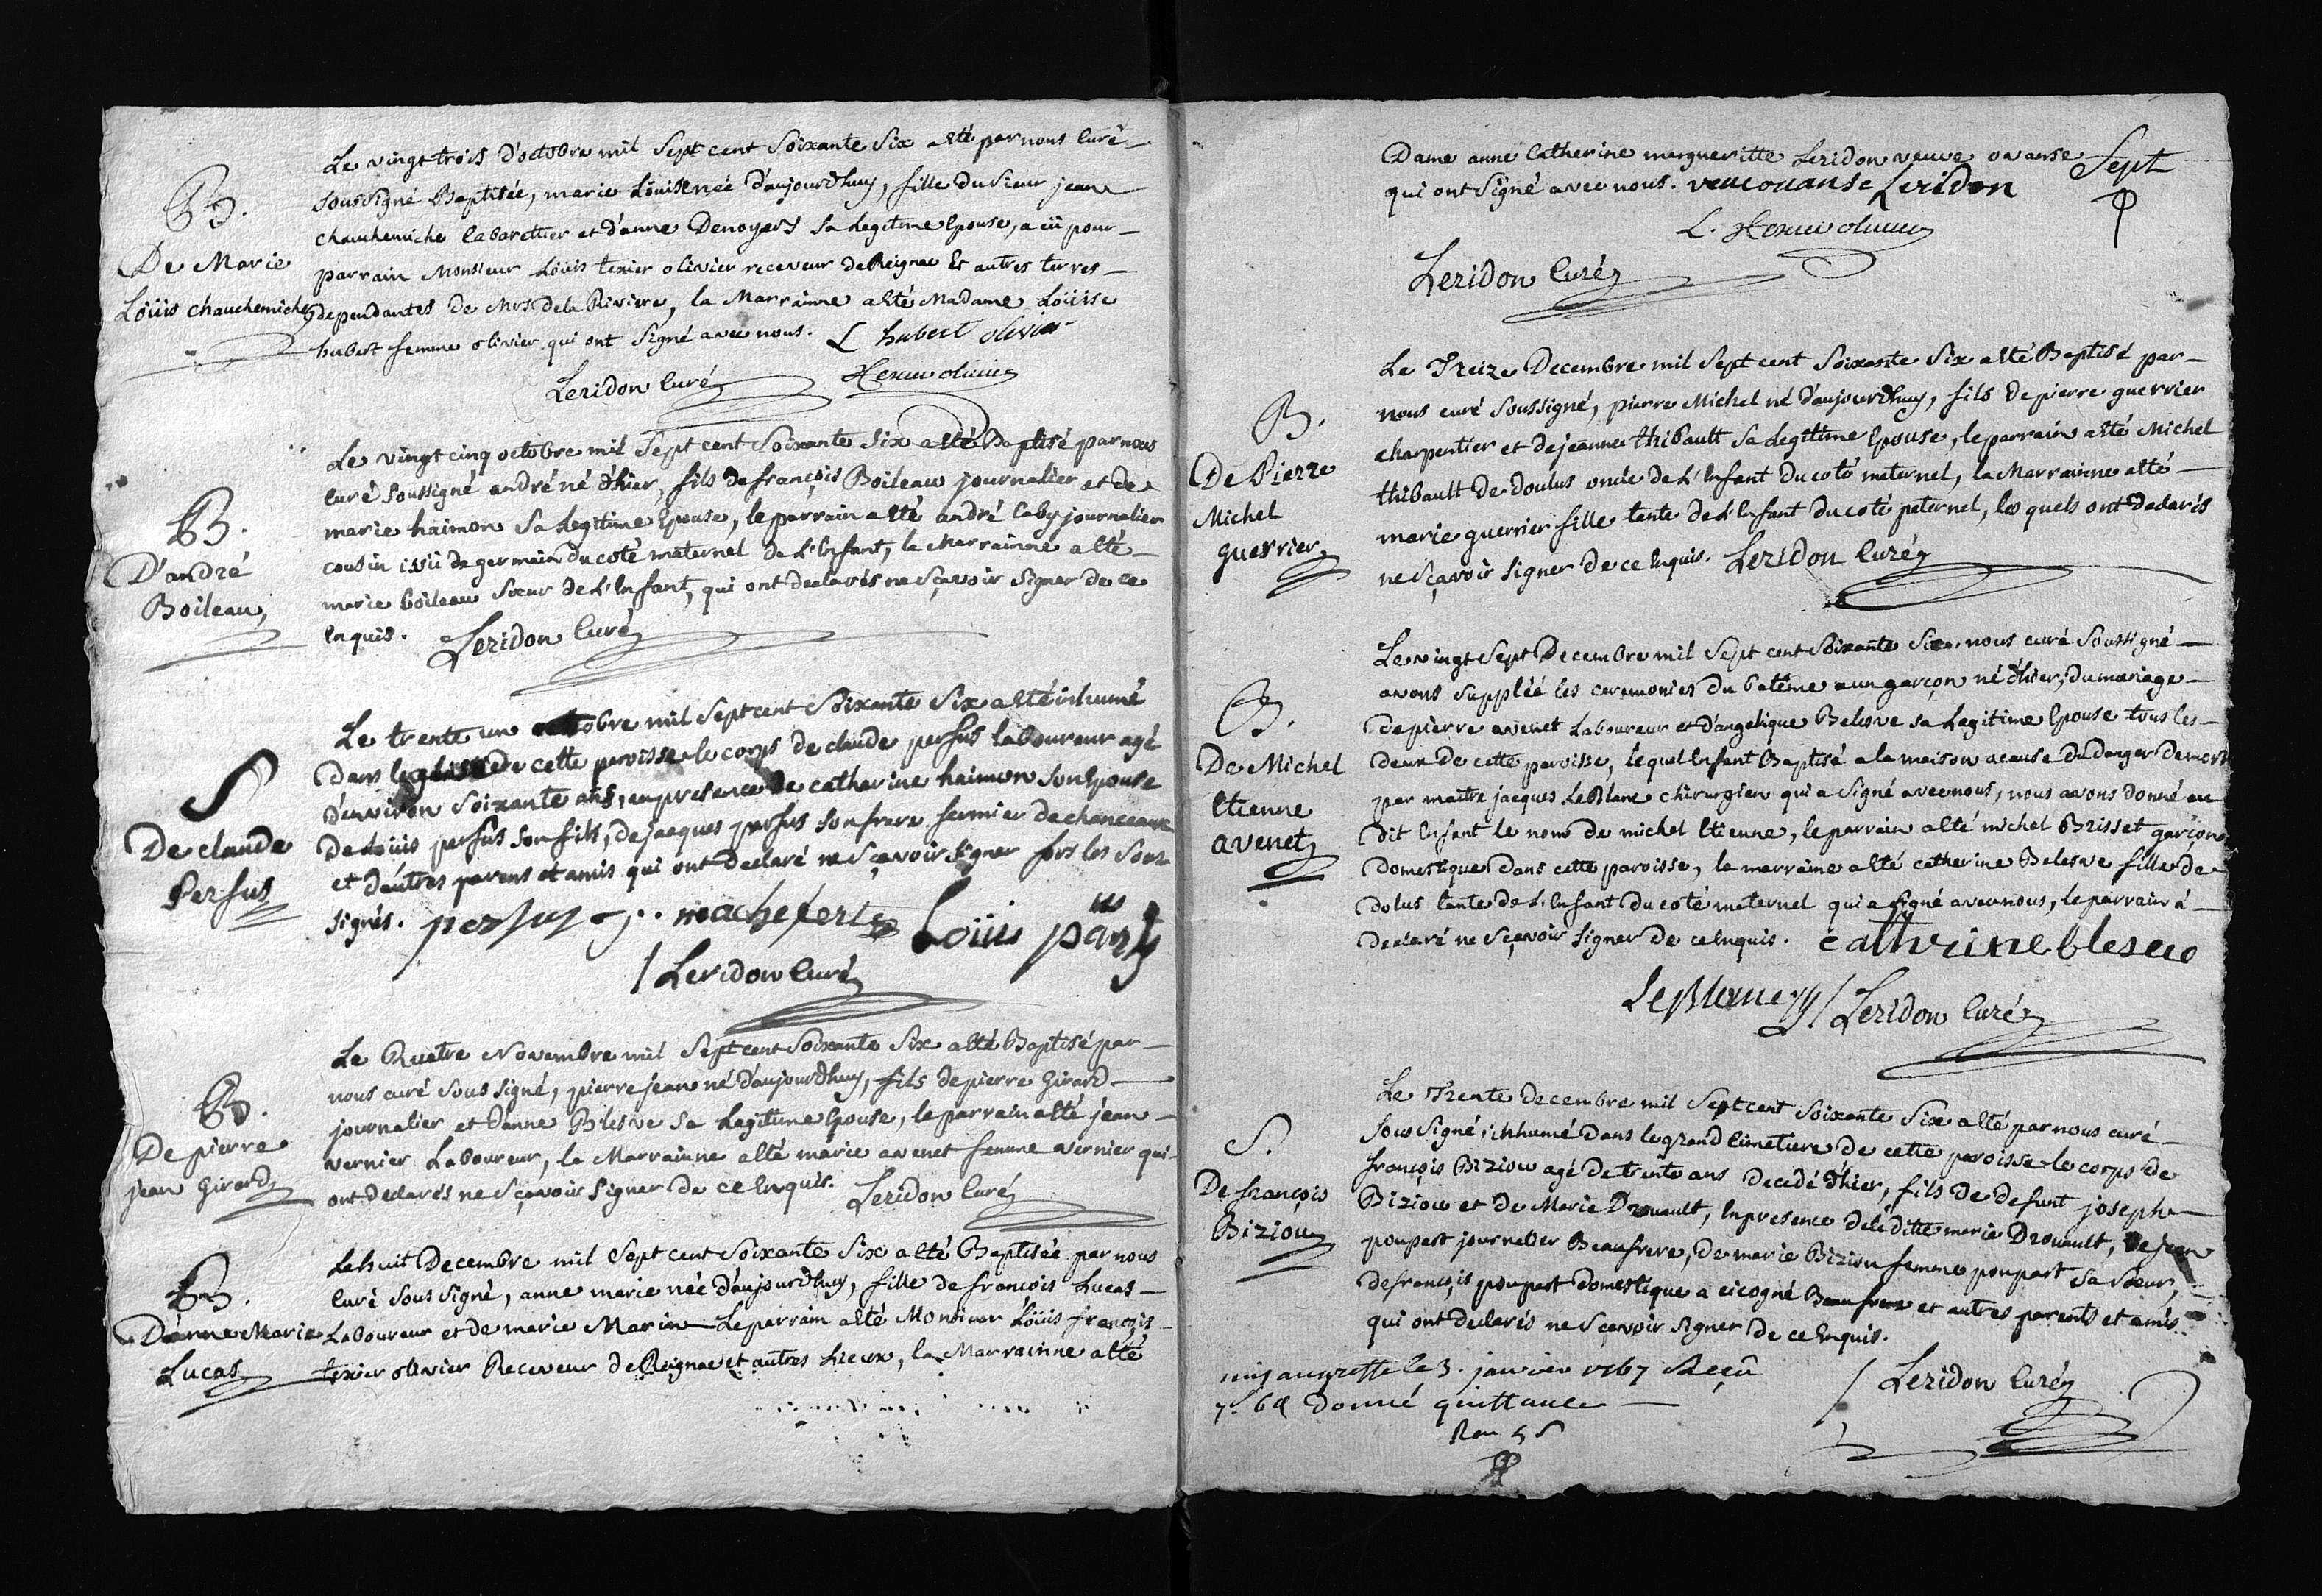 B.
De Marie
Loüis chauchemiche
Le vingt trois d'octobre mil Sept cent Soixante Six a été par nous curé
soussigné Baptisée, marie Loüise née d'aujourdhuy, fille du Sieur jean
chauchemiche Cabarettier et d'anne Denoyers sa Legitime Epouse, a eü pour
parrain Monsieur Loüis texier olivier receveur de Reignac Et autres terres
dependantes de Mrs de la Riviere, la Marrainne a été Madame Loüise
hubert femme olivier qui ont Signé avec nous. L hubert olivier
Leridon Curé Texier olivier
B.
D'andré
Boileau
Le vingt cinq octobre mil Sept cent Soixante six a été Baptisé par nous
Curé Soussigné andré né d'hier, fils de françois Boileau journalier et de
marie haimon Sa Legitime Epouse, le parrain a été andré Caby journalier
cousin issü de germain du coté maternel de L'Enfant, la Marrainne a été
marie boileau Sœur de L'Enfant, qui ont declarés ne Sçavoir Signer de ce
Enquis. Leridon Curé
S
De claude
Persus
Le trente un octobre mil Sept cent Soixante Six a été inhumé
dans leglise de cette paroisse le corps de claude persus laboureur agé
d'environ Soixante ans, en presence de catherine haimon Son Epouse
de Loüis persus son fils, de jacques persus son frere fermier de chanceaux
et d'autres parens et amis qui ont declaré ne Sçavoir Signer fors les Sous
signés. persus macheferts Loüis
Leridon Curé
B.
De pierre
jean Girard
Le Quatre Novembre mil Sept cent Soixante Six a été Baptisé par
nous curé Sous signé, pierre jean né d'aujourdhuy, fils de pierre Girard
journalier et d'anne Blesve Sa Legitime Epouse, le parrain a été jean
vernier Laboureur, la Marrainne a été marie avenet femme vernier qui
ont declarés ne Sçavoir Signer de ce Enquis. Leridon Curé
B.
D'anne Marie
Lucas
Le huit Decembre mil Sept cent Soixante Six a été Baptisée par nous
Curé Sous Signé, anne marie née d'aujourdhuy, fille de francois Lucas
Laboureur et de marie Marin Le parrain a été Monsieur Loüis françois
texier olivier Receveur de Reignac et autres Lieux, la Marrainne a été
Sept
Dame anne Catherine margueritte Leridon veuve ovanse
qui ont Signé avec nous. veuve ovanse Leridon
L. Texier olivier
Leridon Curé
B.
De Pierre
Michel
guerrier
Le Treize Decembre mil Sept cent Soixante Six a été Baptisé par
nous curé Soussigné, pierre Michel né d'aujourdhuy, fils de pierre guerrier
charpentier et de jeanne thibault Sa Legitime Epouse, le parrain a été Michel
thibault de doulus oncle de L'Enfant du coté maternel, la Marrainne a été
marie guerrier fille tante de L'Enfant du coté paternel, les quels ont declarés
ne Sçavoir Signer de ce Enquis. Leridon Curé
B.
De Michel
Etienne
avenet
Le vingt Sept Decembre mil Sept cent Soixante Six, nous curé Soussigné
avons Suppléé les ceremonies du batême a un garçon né d'hier, du mariage
de pierre avenet Laboureur et d'angelique Belesve sa Legitime Epouse tous les
deux de cette paroisse, lequel Enfant Baptisé a la maison a cause du danger de mort
par maitre jacques LeBlanc chirurgien qui a Signé avec nous, nous avons donné au
dit Enfant le nom de michel Etienne, le parrain a été michel Brisset garçon
domestique dans cette paroisse, la marraine a été catherine Belesve fille de
dolus tante de L'Enfant du coté maternel qui a signé avec nous, le parrain à
declaré ne Sçavoir Signer de ce Enquis. cathrine blesve
LeBlanc Leridon Curé
S.
De françois
Biziou
Le Trente decembre mil Sept cent Soixante Six a été par nous curé
sous Signé, inhumé dans le grand Cimetiere de cette paroisse le corps de
françois Biziou agé de trente ans decedé d'hier, fils de defunt joseph
Biziou et de Marie Drouault, En presence de la ditte marie Drouault, de jean
poupart journalier Beaufrere, de marie Biziou femme poupart sa Sœur,
de françois poupart domestique a cicogné Beaufrere et autres parents et amis
qui ont declarés ne Sçavoir Signer de ce Enquis.
Leridon Curé
mis au greffe le 3. janvier 1767 Reçû
7s 6d donné quittance